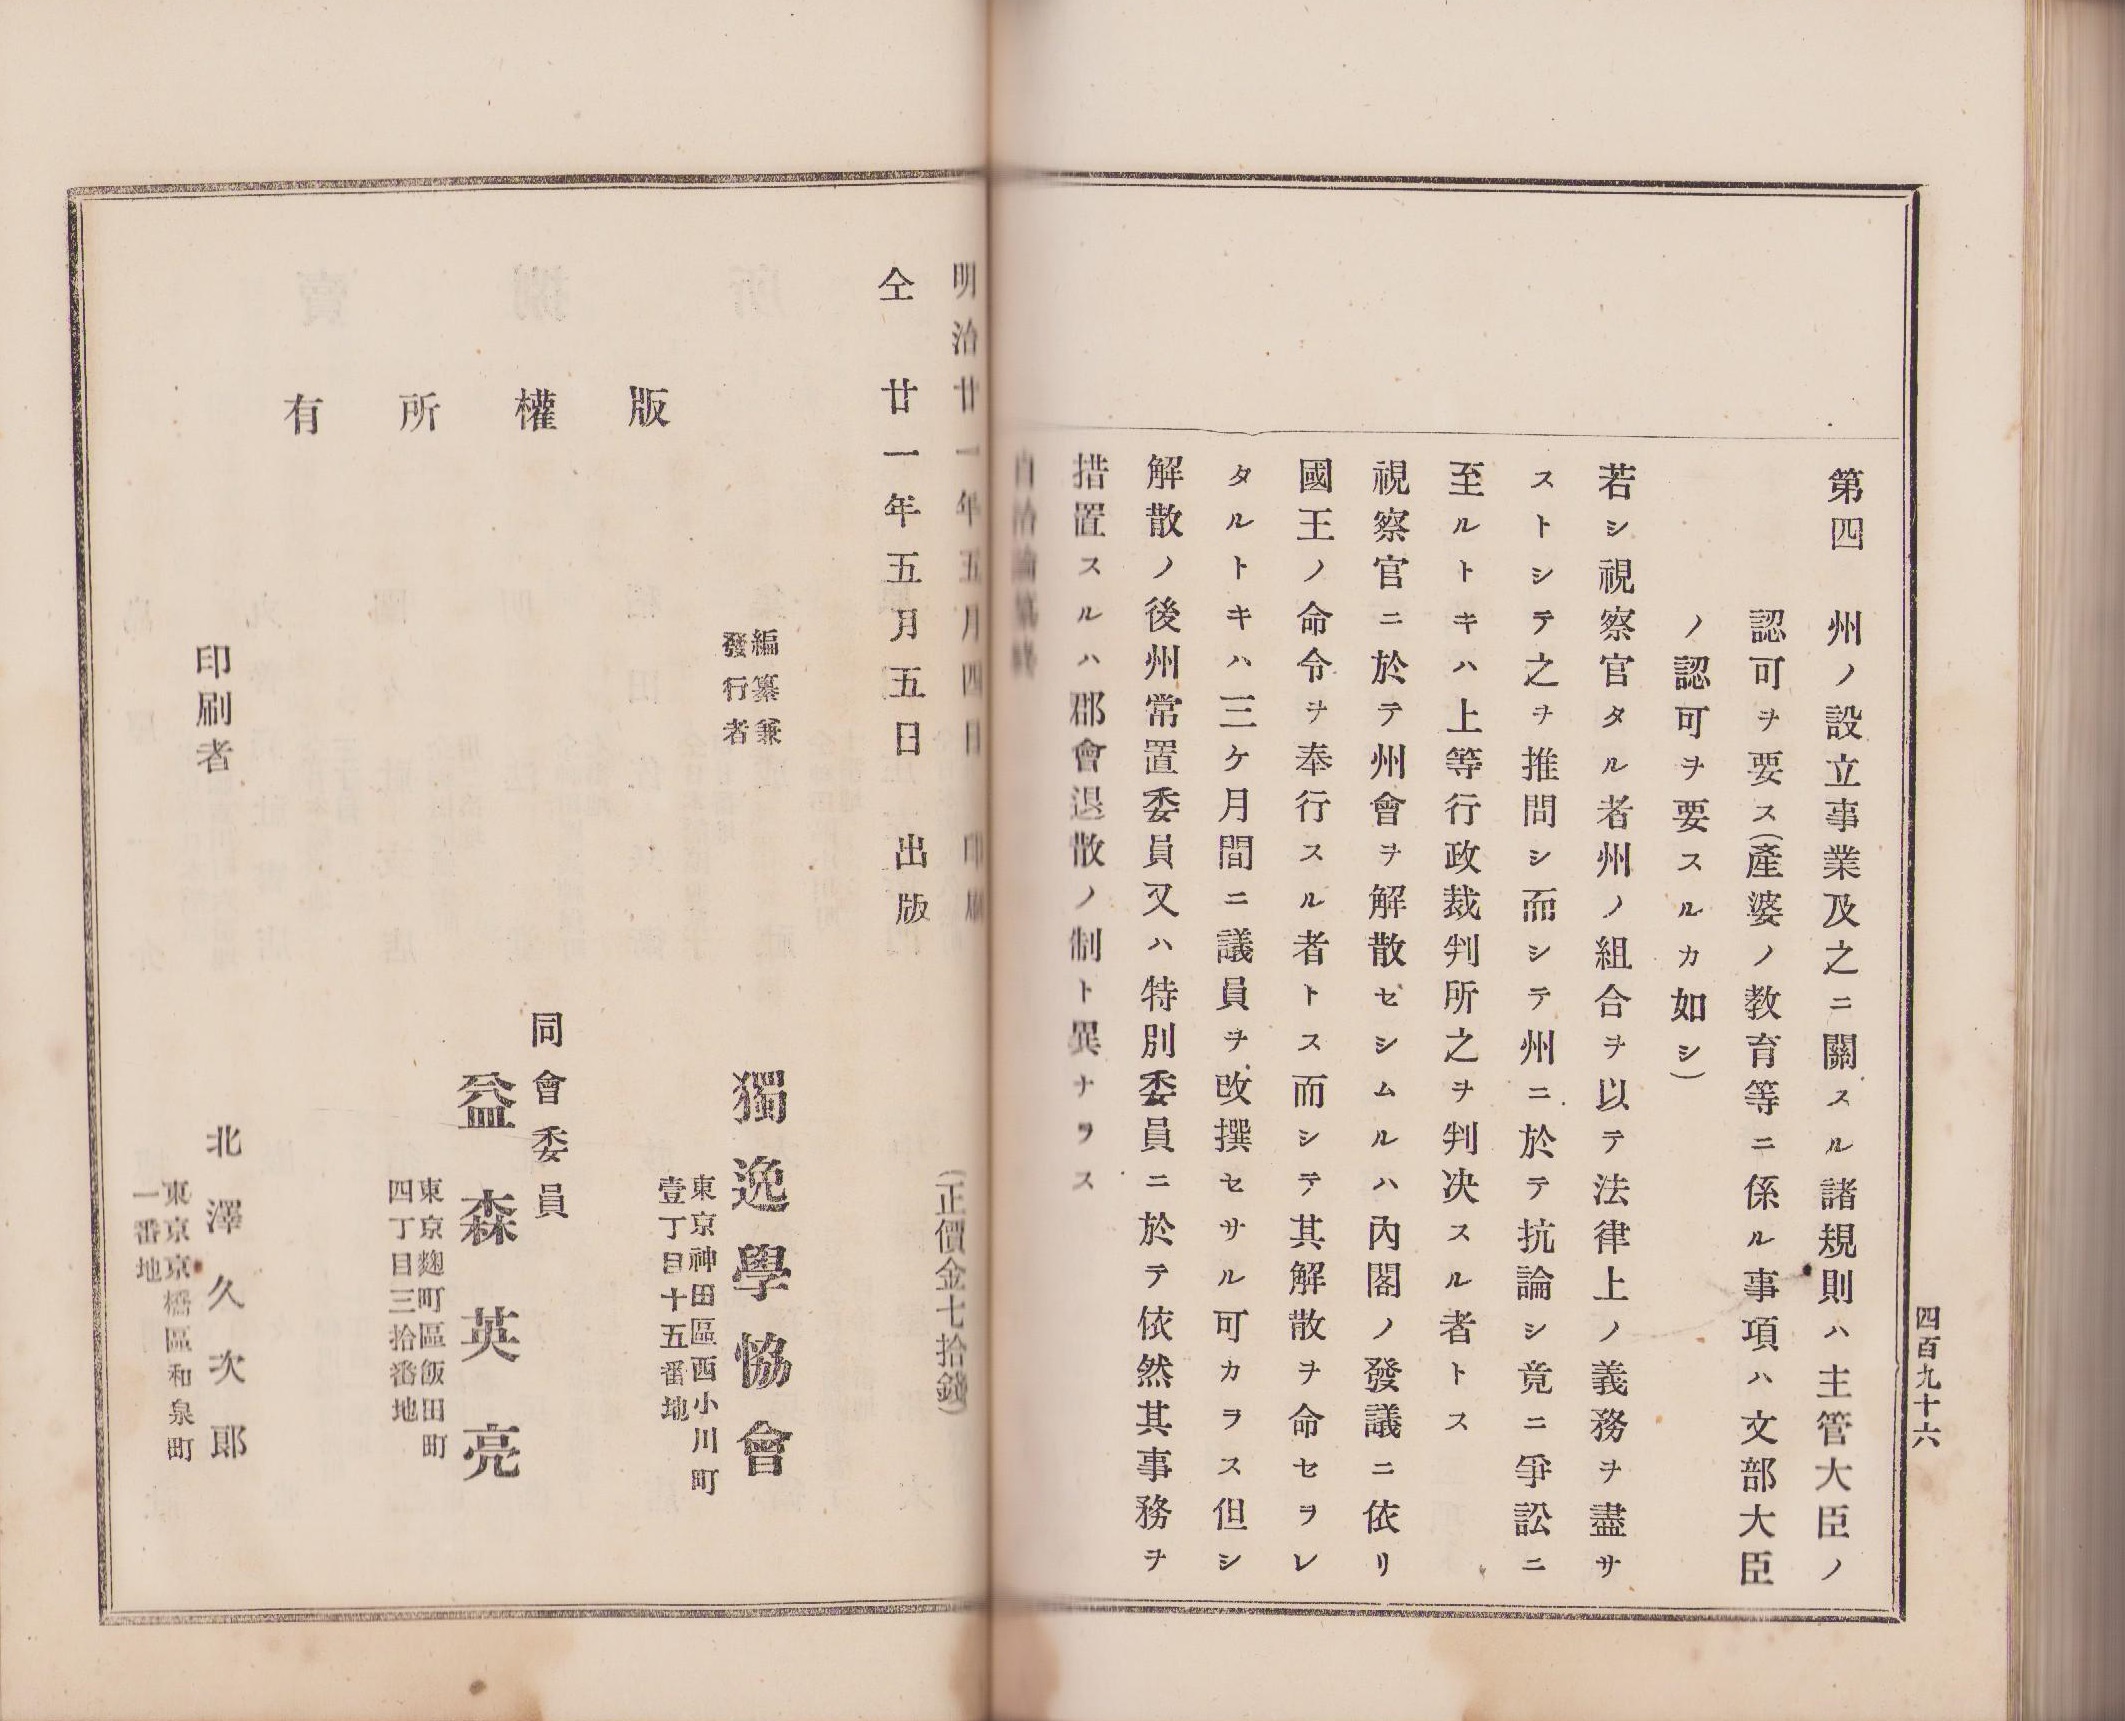 四百九十六
第四　州ノ設立事業及之ニ關スル諸規則ハ主管大臣ノ
認可ヲ要ス(產婆ノ教育等ニ係ル事項ハ文部大臣
ノ認可ヲ要スルカ如シ)
若シ視察官タル者州ノ組合ヲ以テ法律上ノ義務ヲ盡サ
ストシテ之ヲ推問シ而シテ州ニ於テ抗論シ竟ニ爭訟ニ
至ルトキハ上等行政裁判所之ヲ判決スル者トス
視察官ニ於テ州會ヲ解散セシムルハ內閣ノ發議ニ依リ
國王ノ命令ヲ奉行スル者トス而シテ其解散ヲ命セヲレ
タルトキハ三ケ月間ニ議員ヲ改撰セサル可カラス但シ
解散ノ後州常置委員又ハ特別委員ニ於テ依然其事務ヲ
措置スルハ郡會退散ノ制ト異ナヲス
自治論纂終
明治廿一年五月四日　印刷
仝　廿一年五月五日　出版
(正價金七拾錢)
版權所有
編纂兼
發行者
獨逸學協會
東京神田區西小川町
壹丁目十五番地
同會委員
益森英亮
東京麹町區飯田町
四丁目三拾番地
印刷者
北澤久次郎
東京京橋區和泉町
一番地